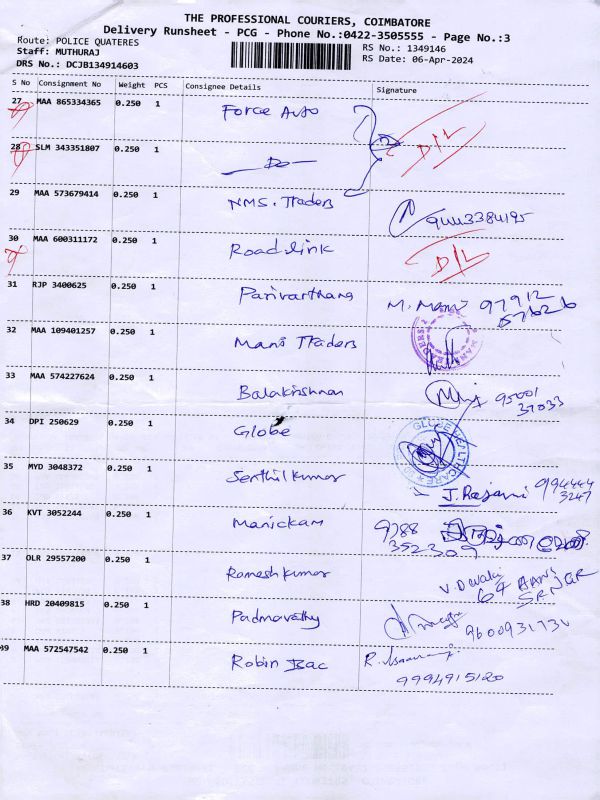 THE PROFESSIONAL COURIERS, COIMBATORE
Delivery Runsheet - PCG - Phone No.:0422-3505555 - Page No.:3
Route: POLICE QUATERES
RS No.: 1349146
Staff: MUTHURAJ
RS Date: 06-Apr-2024
DRS No.: DCJB134914603
S No Consignment No Weight PCS Consignee Details Signature
27 MAA 865334365 0.250 1 Force Auto
D/L
28 SLM 343351807 0.250 1 Do
29 MAA 573679414 0.250 1 NMS. Traders 9443384195
30 MAA 600311172 0.250 1 Roadslink D/L
31 RJP 3400625 0.250 1 Parivarthana M. Mani 97912
67626
32 MAA 109401257 0.250 1 Mani Traders
33 MAA 574227624 0.250 1 Balakrishnan 95001
37033
34 DPI 250629 0.250 1 Globe GLOBE HEALTHCARE
35 MYD 3048372 0.250 1 Senthilkumar J. Rajani 994444
3247
36 KVT 3052244 0.250 1 Manickam 9788
352309
37 OLR 29557200 0.250 1 Rameshkumar V. Devaki
64
38 HRD 20409815 0.250 1 Padmavathy 9600931731
39 MAA 572547542 0.250 1 Robin Isac R.
9994915120